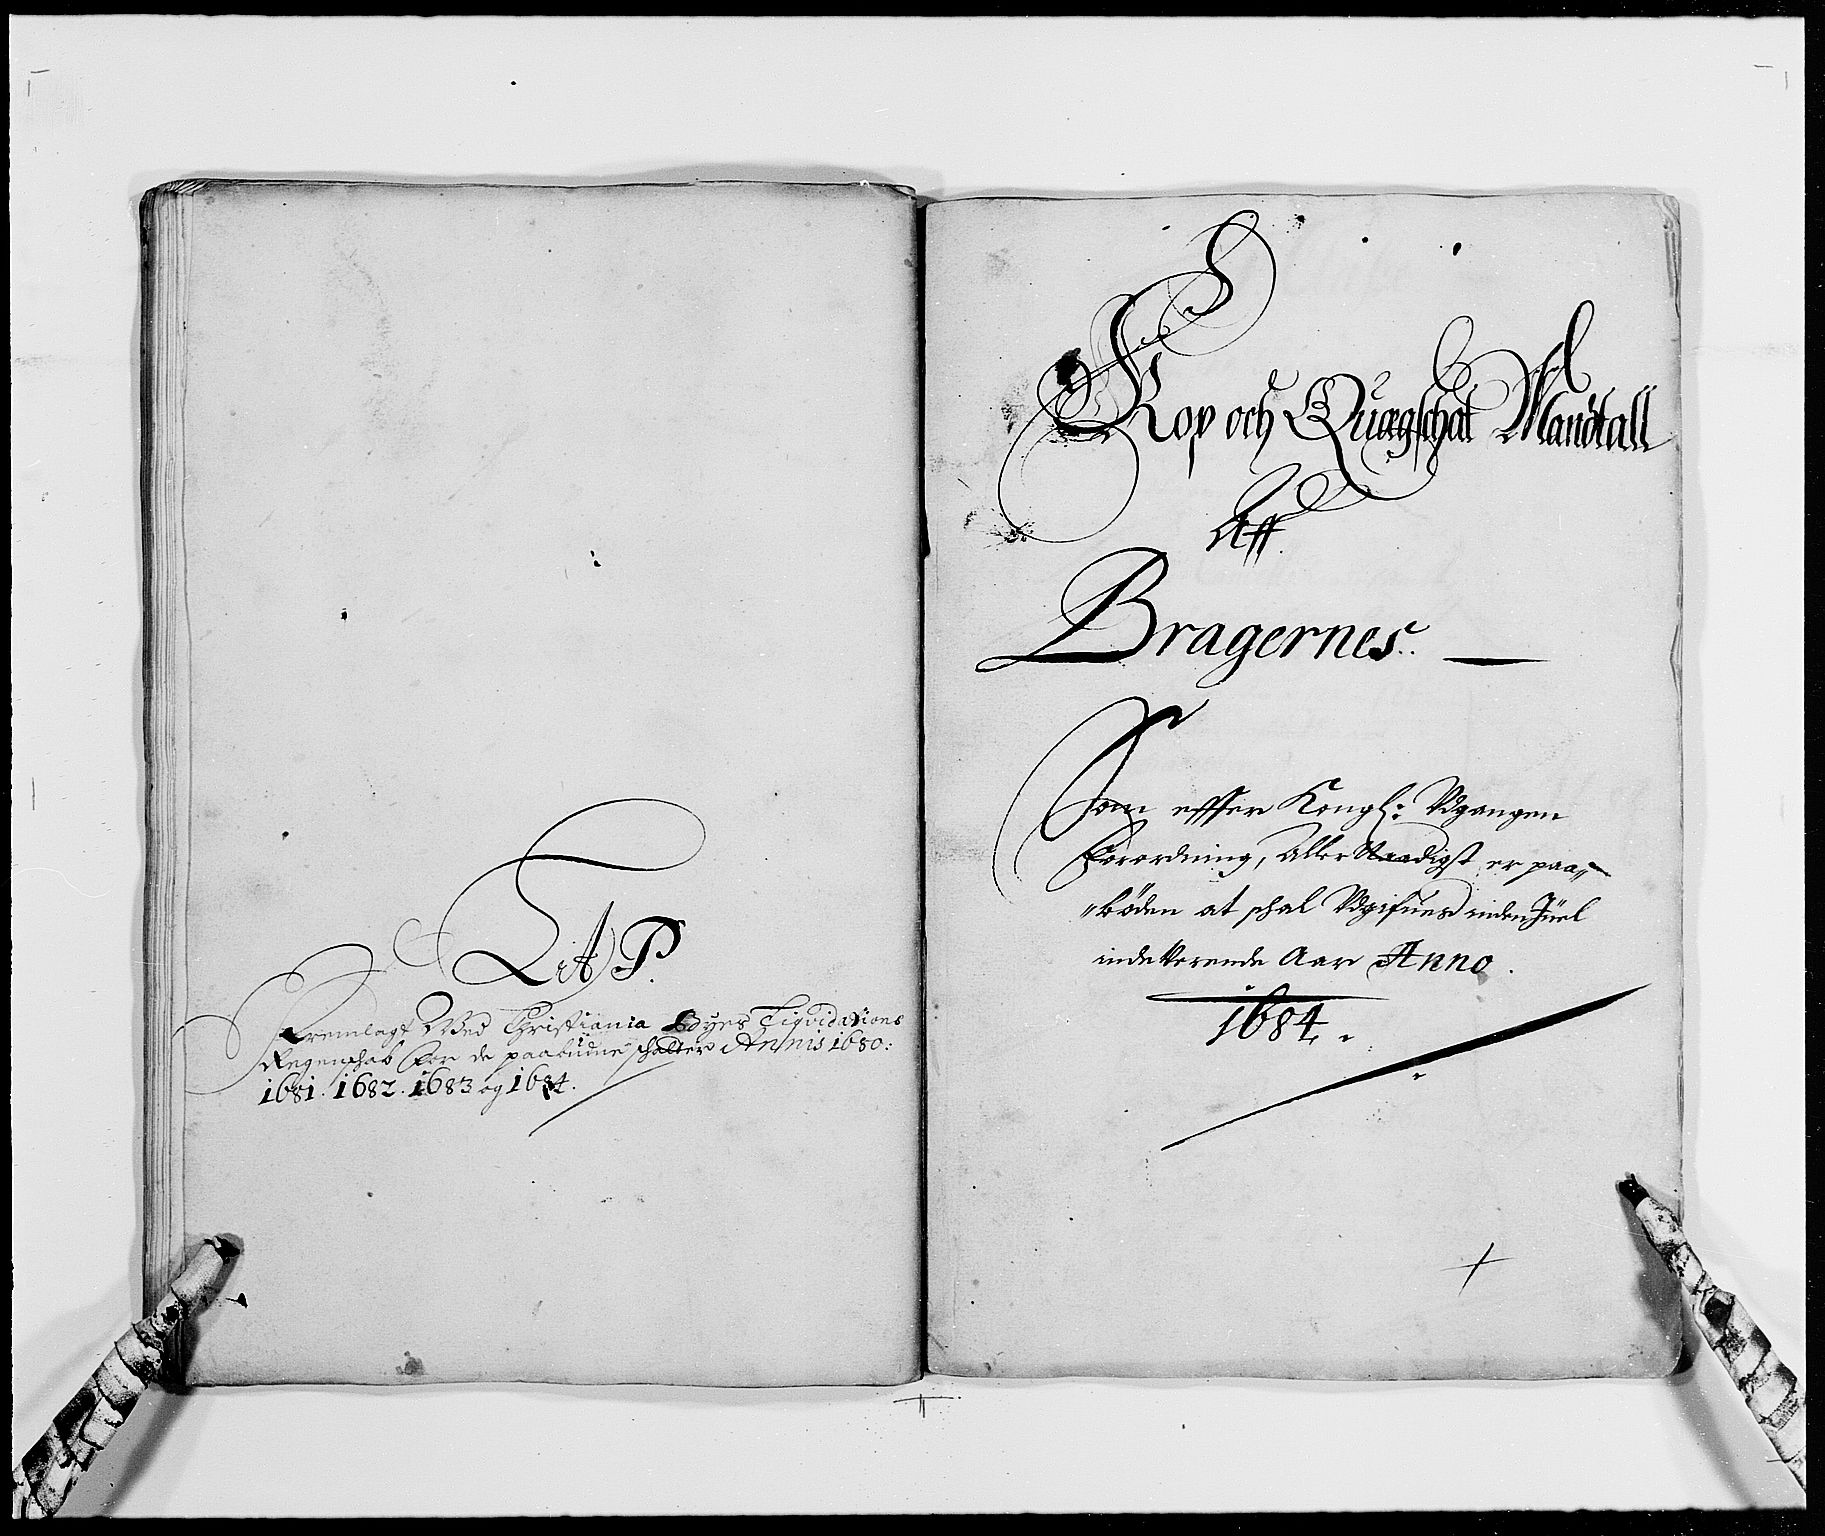 Lit P.
Fremlagt Wed Christiania Byes Liqvidations
Regenschab for de paabudne schatter Annis 1680:
1681. 1682. 1683 og 1684.
Kop och Quægschat Mandtall
Aff
Bragernes.
Som effter Kongl: Udgangen
Forordning, Aller Naadigst er paa„
„böden at schal Udgifues inden Juel
indeverende Aar Anno.
1684.